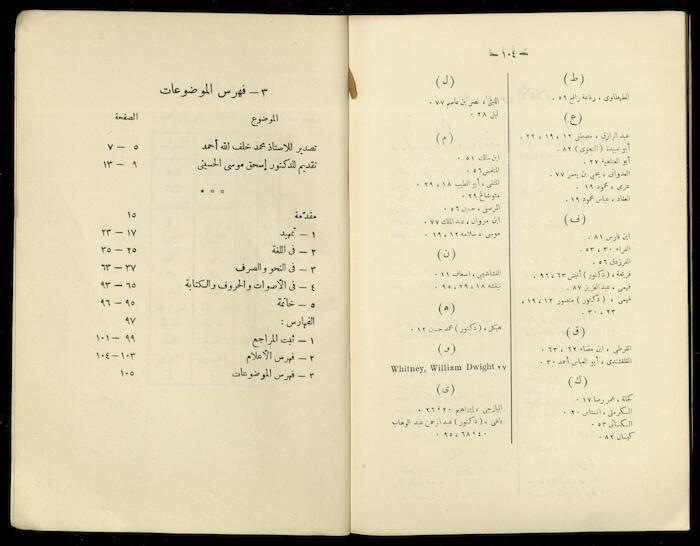 — ١٠٤ —
(ط)
الطهطاوى ، رفاعة رافع ٥٩ .
(ع)
عبد الرازق ، مصطفى ١٢ ، ١٩ ، ٢٢ .
أبو عبيدة ( النحوى ) ٨٢ .
أبو العتاهية ٢٧ .
العدوانى ، يحيى بن يعمر ٧٧
عزمى ، محمود ١٩ .
العقاد ، عباس محمود ١٩ .
(ف)
ابن فارس ٨١ .
الفراء ٣٠ ، ٥٣ .
الفرزدق ٥٦ .
فريحة ، ( دكتور ) أنيس ٦٣ ، ٩٦ .
فهمى ، عبد العزيز ٨٧ .
فهمى ، ( دكتور ) منصور ١٢ ، ١٩ ،
٢٣ ، ٣٠ .
(ق)
القرطبى ، ابن مضاء ٦٢ ، ٦٣ .
القلقشندى ، أبو العباس أحمد ٣٠ .
(ك)
كحالة ، عمر رضا ١٧ .
الكرملى ، انستاس ٢٠ .
الكسائى ٥٣ .
كيسان ٨٢ .
(ل)
الليثى ، نصر بن عاصم ٧٧ .
ليل ٢٨ .
(م)
ابن مالك ٥١ .
المتلمس ٥٦ .
المتنبى ، أبو الطيب ١٨ ، ٢٩ .
متوشالح ٢٩ .
المرصفى ، حسين ٥٦ .
ابن مروان ، عبد الملك ٧٧ .
موسى ، سلامه ١٢ ، ١٩ .
(ن)
النشاشيبى ، اسعاف ١١ .
نيتشه ١٨ ، ٢٩ ، ٩٥ .
(ه)
هيكل ، ( دكتور ) محمد حسين ١٢ .
(و)
Whitney, William Dwight ٢٧
(ى)
اليازجى ، إبراهيم ٢٠ ، ٢٦ .
يافى ، ( دكتور ) عبد الرحمن عبد الوهاب
٤٠ ، ٦٨ ، ٩٥ .
٣ — فهرس الموضوعات
الموضوع الصفحة
تصدير للاستاذ محمد خلف الله أحمد ٥ — ٧
تقديم للدكتور إسحق موسى الحسينى ٩ — ١٣
* * *
مقدّمة ١٥
١ — تمهيد ١٧ — ٢٣
٢ — فى اللغة ٢٥ — ٣٥
٣ — فى النحو والصرف ٣٧ — ٦٣
٤ — فى الأصوات والحروف والكتابة ٦٥ — ٩٣
٥ — خاتمة ٩٥ — ٩٦
الفهارس : ٩٧
١ — ثبت المراجع ٩٩ — ١٠١
٢ — فهرس الأعلام ١٠٣ — ١٠٤
٣ — فهرس الموضوعات ١٠٥